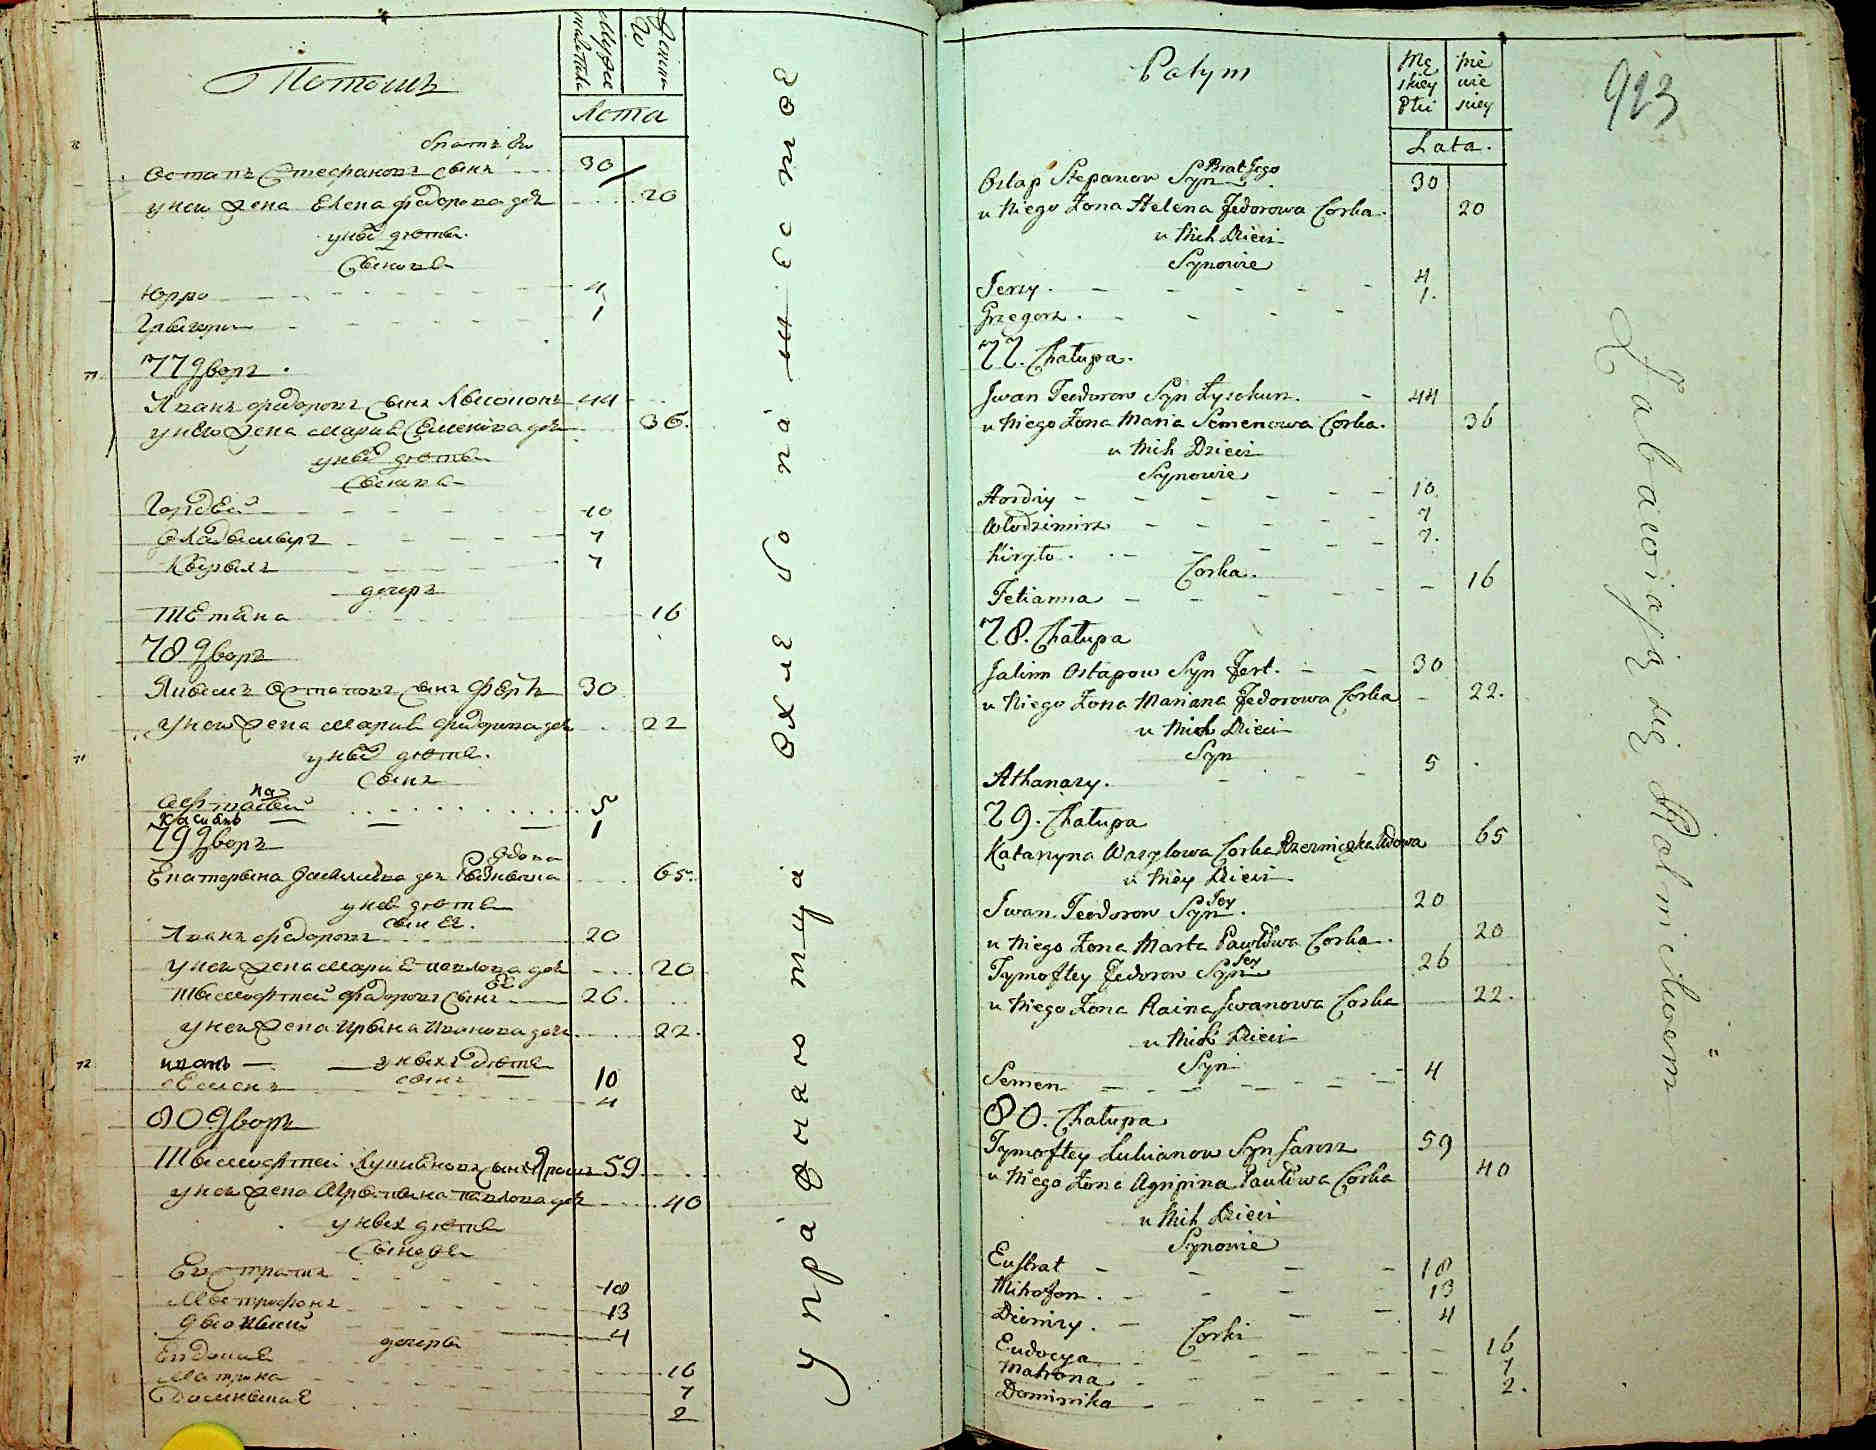 Потомъ
Мужеска
Женска
Лѣта
братъ его
Остапъ Стефановъ сынъ 30
у него жена Елена Федорова дочь 20
у ныхъ дѣты
Сыновѣ
Юрко 4
Грыгоры 1
77 Дворъ.
Иванъ Федоровъ сынъ 44
у него жена Марыя Семенова дочь 36.
у ныхъ дѣты
Сыновѣ
Гордѣй 10
Владымыръ 7
Кырылъ 7
дочеръ
Тетяна 16
78 Дворъ
Якымъ Остаповъ сынъ Фертъ 30
у него жена Марыя Федорова дочь 22
у ныхъ дѣты.
Сынъ
5
Касиянъ 1
79 Дворъ
вдова
Екатерына Васылева дочь 65.
у нея дѣты
сын ея.
Иванъ Федоровъ 20
у него жена Марья Павлова дочь 20
Тымофтей Федоровъ сынъ 26.
у него жена Ирына Иванова дочь 22.
у ныхъ дѣты
иванъ 10
сынъ
Семенъ 4
80 Дворъ
Тымофтей Лукиановъ сынъ 59.
у него жена Агрепына Павлова дочь 40
у ныхъ дѣты
Сыновѣ
Евстратъ 18
Мытрофонъ 13
Дыонысий 4
дочеры
Евдокия 16
Матрона 7
Домныкия 2
упражняютца охлебопашество
Patym
Mę skiey Płci
Żie nie skiey
Lata.
923
Brat Jego
Ostap Stepanow Syn 30
u Niego Żona Helena Fedorowa Corka. 20
u Nich Dzieci
Synowie
Jerzy. 4
Grzegorz. 1.
77. Chałupa.
Jwan Teodorow Syn Łysohun. 44
u Niego Żona Maria Semenowa Corka. 36
u Nich Dzieci
Synowie
Hordiy 10.
Włodzimirz 7
Kiryło. 7.
Corka.
Tetianna 16
78. Chałupa
Jakim Ostapow Syn Fert. 30
u Niego Żona Mariana Fedorowa Corka 22.
u Nich Dzieci
Syn
Athanazy. 5
79. Chałupa
Katarzyna Wasylowa Corka Rzezniczka Wdowa 65
u Niey Dzieci
Jwan Teodorow Syn Jey. 20
u Niego Żona Marta Pawłowa Corka. 20
Tymoftey Fedorow Syn Jey 26
u Niego Żona Raina Jwanowa Corka 22.
u Nich Dzieci
Syn
Semen 4
80. Chałupa
Tymoftey Lukianow Syn Jarosz 59
u Niego Żona Agripina Pawłowa Corka 40
u Nich Dzieci
Synowie
Eustrat 18
Mitrofon. 13
Dionizy. 4
Corki
Eudocya 16
Matrona 7
Dominika 2.
Zabawiaią się Rolnictwem